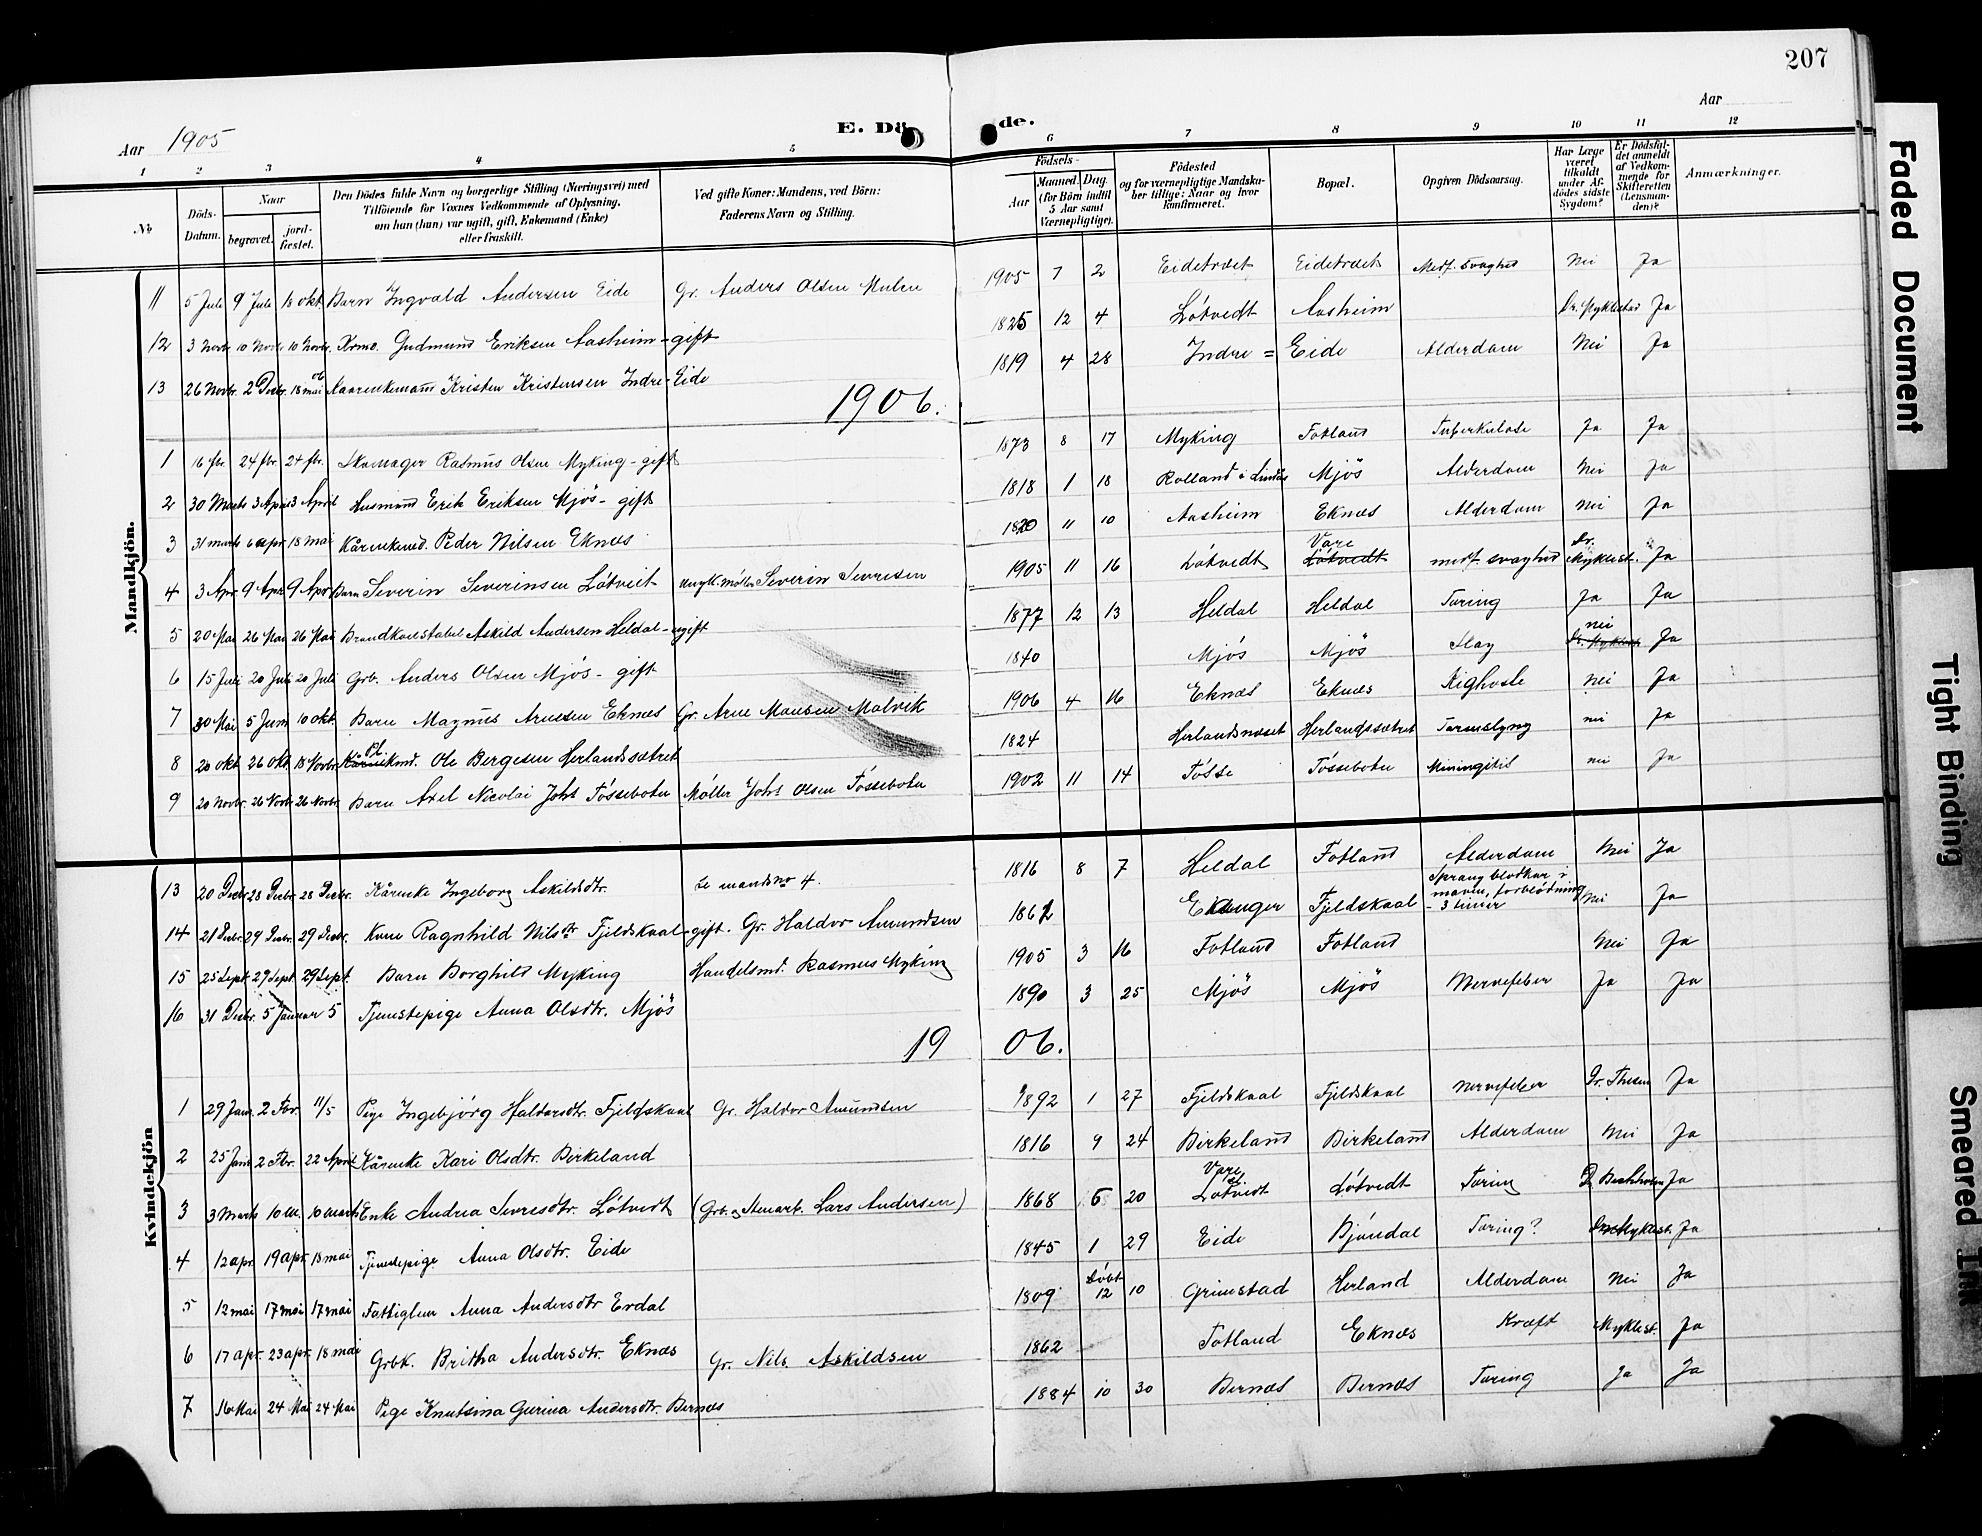 207
Aar 1905
E. Dö
de.
Aar
1 2 3 4 5 6 7 8 9 10 11 12
№
Döds-Datum.
Naar
begravet.
jord-fæstet.
Den Dödes fulde Navn og borgerlige Stilling (Næringsvei) med
Tilföiende for Voxnes Vedkommende af Oplysning,
om han (hun) var ugift, gift, Enkemand (Enke)
eller fraskilt.
Ved gifte Koner: Mandens, ved Börn:
Faderens Navn og Stilling.
Födsels-
Aar
Maaned. Dag.
(for Börn indtil
5 Aar samt
Værnepligtige).
Födested
og for værnepligtige Mandska-
ber tillige: Naar og hvor
konfirmeret.
Bopæl.
Opgiven Dödsaarsag.
Har Læge
været
tilkaldt
under Af-
dödes sidste
Sygdom?
Er Dödsfal-
det anmeldt
af Vedkom-
mende for
Skifteretten
(Lensman-
den)?
Anmærkninger.
Mandkjön.
11 5 Juli 9 Juli 18 Okt. Barn Ingvald Andersen Eide Gr. Anders Olsen Mulen 1905 7 2 Eidetræet Eidetræet Medf. Svaghed Nei Ja
12 3 Novbr 10 Novbr 10 Novbr. Krmd. Gudmund Eriksen Aasheim - gift 1825 12 4 Lötvedt Aasheim Dr. Myklestad Ja
13 26 Novbr. 2 Decbr. 18 mai 06 Kaarenkemann Kristen Kristensen Indre-Eide 1819 4 28 Indre = Eide Alderdom Nei Ja
1906.
1 16 fbr. 24 fbr. 24 fbr. Skomager Rasmus Olsen Myking - gift 1873 8 17 Myking Totland Tuberkulose Ja Ja
2 30 Marts 3 April 3 April Husmand Erik Eriksen Mjös - gift 1818 1 18 Rolland i Lindås Mjös Alderdom Nei Ja
3 31 marts 6 apr. 18 mai Kårenkemd. Peder Nilsen Eknæs 1820 11 10 Aasheim Eknæs Alderdom Nei Ja
4 3 Apr. 9 Apr. 9 Apr. Barn Severin Severinsen Lötveit Ungk. møller Severin Sevresen 1905 11 16 Lötvedt Vare Lötvedt medf. svaghed Dr. Myklest. Ja
5 20 Mai 26 Mai 26 Mai Brandkonstabel Askild Andersen Heldal - ugift 1877 12 13 Heldal Heldal Tæring Ja Ja
6 15 Juli 20 Juli 20 Juli Grb. Anders Olsen Mjös - gift 1840 Mjös Mjös Slag nei Dr. Myklest. Ja
7 30 Mai 5 Juni 10 Okt. Barn Magnus Arnesen Eknæs Gr. Arne Monsen Molvik 1906 4 16 Eknæs Eknæs Kighoste Nei Ja
8 20 Okt. 26 Okt. 18 Novbr. Pl. Ole Bergesen Herlandssætret 1824 Herlandsnæset Herlandssætret Tarmslyng nei Ja
9 20 Novbr. 26 Novbr. 26 Novbr. Barn Axel Nicolai Johs Fössebotn Møller Johs Olsen Fössebotn 1902 11 14 Fösse Fössebotn Miningitis nei Ja
Kvindekjön
13 20 Decbr. 28 Decbr. 28 Decbr. Kårenke Ingeborg Askildsdtr. Se mandsno 4. 1816 8 7 Heldal Totland Alderdom Nei Ja
14 21 Decbr. 29 Decbr. 29 Decbr. Kone Ragnhild Nilsdtr Fjeldskaal - gift. Gr. Haldor Amundsen 1862 Eksanger Fjeldskaal Sprang blodkar i maven, forblødning - 3 timer Nei Ja
15 25 Sept. 29 Sept. 29 Sept. Barn Borghild Myking Handelsmd. Rasmus Myking 1905 3 16 Totland Totland Nei Ja
16 31 Decbr. 5 Januar 5 Tjenestepige Anna Olsdtr. Mjös 1890 3 25 Mjös Mjös Nervefeber Ja Ja
19 06.
1 29 Jan. 2 Fbr. 11/5 Pige Ingebjörg Haldorsdtr. Fjeldskaal Gr. Haldor Amundsen 1892 1 27 Fjeldskaal Fjeldskaal Nervefeber Dr. Thesen Ja
2 25 Jan. 2 Fbr. 22 April Kårenke Kari Olsdtr. Birkeland 1816 9 24 Birkeland Birkeland Alderdom Nei Ja
3 3 Marts 10 M. 10 marts Enke Andrea Sevresdtr. Lötvedt (Grb. & Stenarb. Lars Andersen) 1868 6 20 Vare Lötvedt Lötvedt Tæring Ja
4 12 apr. 19 apr. 18 mai Tjenestepige Anna Olsdtr. Eide 1845 1 29 Eide Bjöndal Tæring? Dr. Myklest. Ja
5 12 mai 17 mai 17 mai Fattiglem Anna Andersdtr Erdal 1809 Döbt 12 10 Grimstad Herland Alderdom Nei Ja
6 17 apr. 23 apr. 18 mai Grbk. Britha Andersdtr. Eknæs Gr. Nils Askildsen 1862 Totland Eknæs Kræft Myklest. Ja
7 16 Mai 24 Mai 24 Mai Pige Knutsina Gurina Andersdtr. Bernæs 1884 10 30 Bernæs Bernæs Tæring Ja Ja
Faded Document
Tight Binding
Smeared Ink